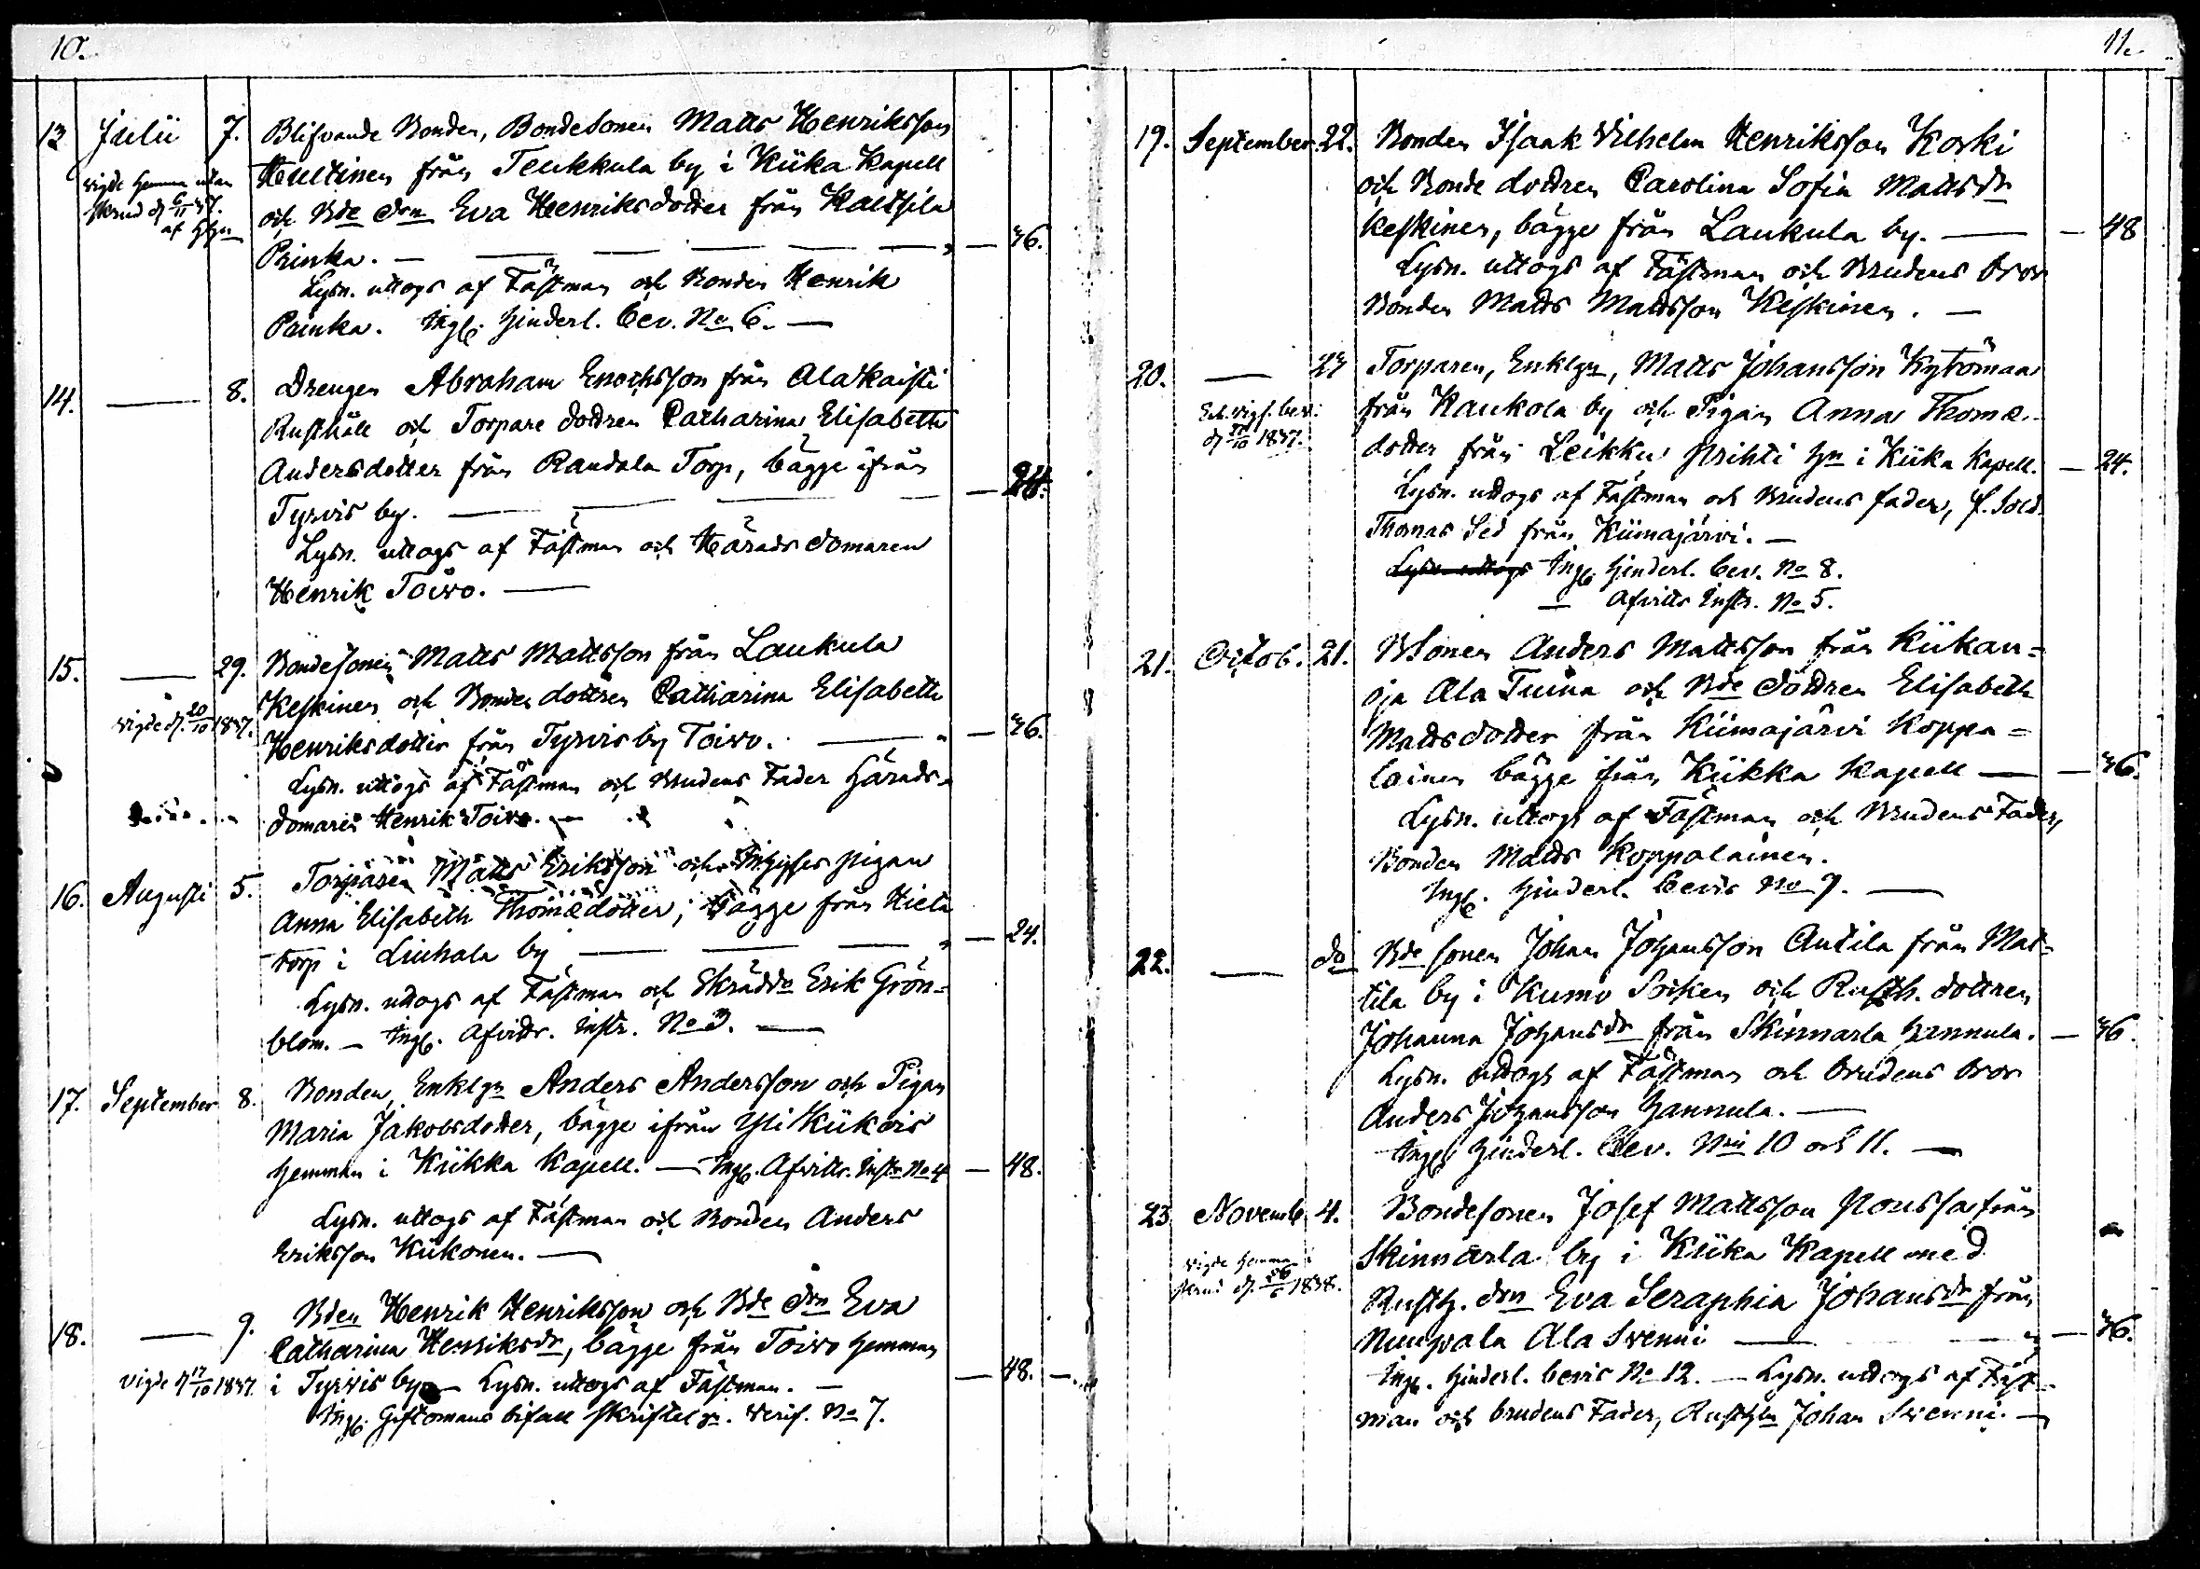 10.
13 Julii 7. Blifvande Bonden, Bondesonen Matts Henriksson
Heultinen från Teukkula by i Kiika Kapell
vigde hemma utan
skrud d. 6/11 37.
och Bde drn Eva Henriksdotter från Kaltsila
Prinka. — — — — — — 36.
Lysn. uttogs af Fästman och Bonden Henrik
Prinka. Ingb. hinderl. bev. No 6. —
14. — 8. Drengen Abraham Enochsson från Alakaisti
Rusthåll och Torpare dottren Catharina Elisabeth
Andersdotter från Randala Torp, bägge ifrån
Tyrvis by. — — — — 24.
Lysn. uttogs af Fästman och Häradsdomaren
Henrik Toivo. —
15. — 29. Bondesonen Matts Mattsson från Laukula
Keskinen och Bonden dottren Catharina Elisabeth
vigde d. 20/10 1837.
Henriksdotter från Tyrvis by Toivo. — — 36.
Lysn. uttogs af Fästman och Brudens Fader Härads-
domaren Henrik Toivo. —
16. Augusti 5. Torparen Matts Eriksson och pigan
Anna Elisabeth Thomædotter, bägge från Kiela
torp i Liuhala by — — — — 24.
Lysn. uttogs af Fästman och Skrädd. Erik Grön-
blom. — Ingb. Afvittr. Instr. No 3. —
17. September 8. Bonden, Enklgn Anders Andersson och Pigan
Maria Jakobsdotter, bägge ifrån Yli Kiikois
hemman i Kiikka Kapell. — Ingb. Afvittr. Instr No 4 — 48.
Lysn. uttogs af Fästman och Bonden Anders
Eriksson Kiikonen. —
18. — 9. Bden Henrik Henriksson och Bde drn Eva
Catharina Henriksdr, bägge från Toivo hemman
vigde d 17/10 1837. i Tyrvis by — Lysn. uttogs af Fästman. — — 48. —
Ingb. Giftomans bifall skriftelgn. Verif. No 7.
11.
19. September 22. Bonden Isaak Vilhelm Henriksson Koski
och Bonde dottren Carolina Sofia Mattsdr
Keskinen, bägge från Laukula by. — — 48
Lysn. uttogs af Fästman och Brudens bror
Bonden Matts Mattsson Keskinen. —
20. — 23 Torparen, Enklgn, Matts Johansson Kytömaa
från Kaukola by och Pigan Anna Thomæ-
1837.
dotter från Leikku Prihti hn i Kiika Kapell. — 24.
Lysn. uttogs af Fästman och Brudens fader, f. Sold.
Thomas Sed från Kiimajärvi. —
Lysn. uttogs Ingb. Hinderl. bev. No 8.
— Afvittr Instr. No 5.
21. Octob. 21. BSonen Anders Mattsson från Kiikan-
oja Ala Tuina och Bde dottren Elisabeth
Mattsdotter från Kiimajärvi Koppa-
lainen bägge från Kiikka Kapell — — 36.
Lysn. uttogs af Fästman och Brudens Fader,
Bonden Matts Koppalainen.
Ingb. hinderl. bevis No 9. —
22. — do Bde sonen Johan Johansson Antila från Mat-
tila by i Kumo Socken och Rusth. dottren
Johanna Johansdr från Skinnarla Hannula. — 36.
Lysn. uttogs af Fästman och brudens bror
Anders Johansson Hannula. —
Ingb. hinderl. Bev. Nris 10 och 11. —
23 Novemb. 4. Bondesonen Josef Mattsson Nonssa från
Skinnarla by i Kiika Kapell med
vigde hemma i
skrud d. 1838.
Rusth. drn Eva Seraphia Johansdr från
Nuupala Ala Svenni — — 36.
Ingb. hinderl. bevis No 12. — Lysn. uttogs af Fäst-
man och brudens Fader, Rusthn Johan Svenni. —